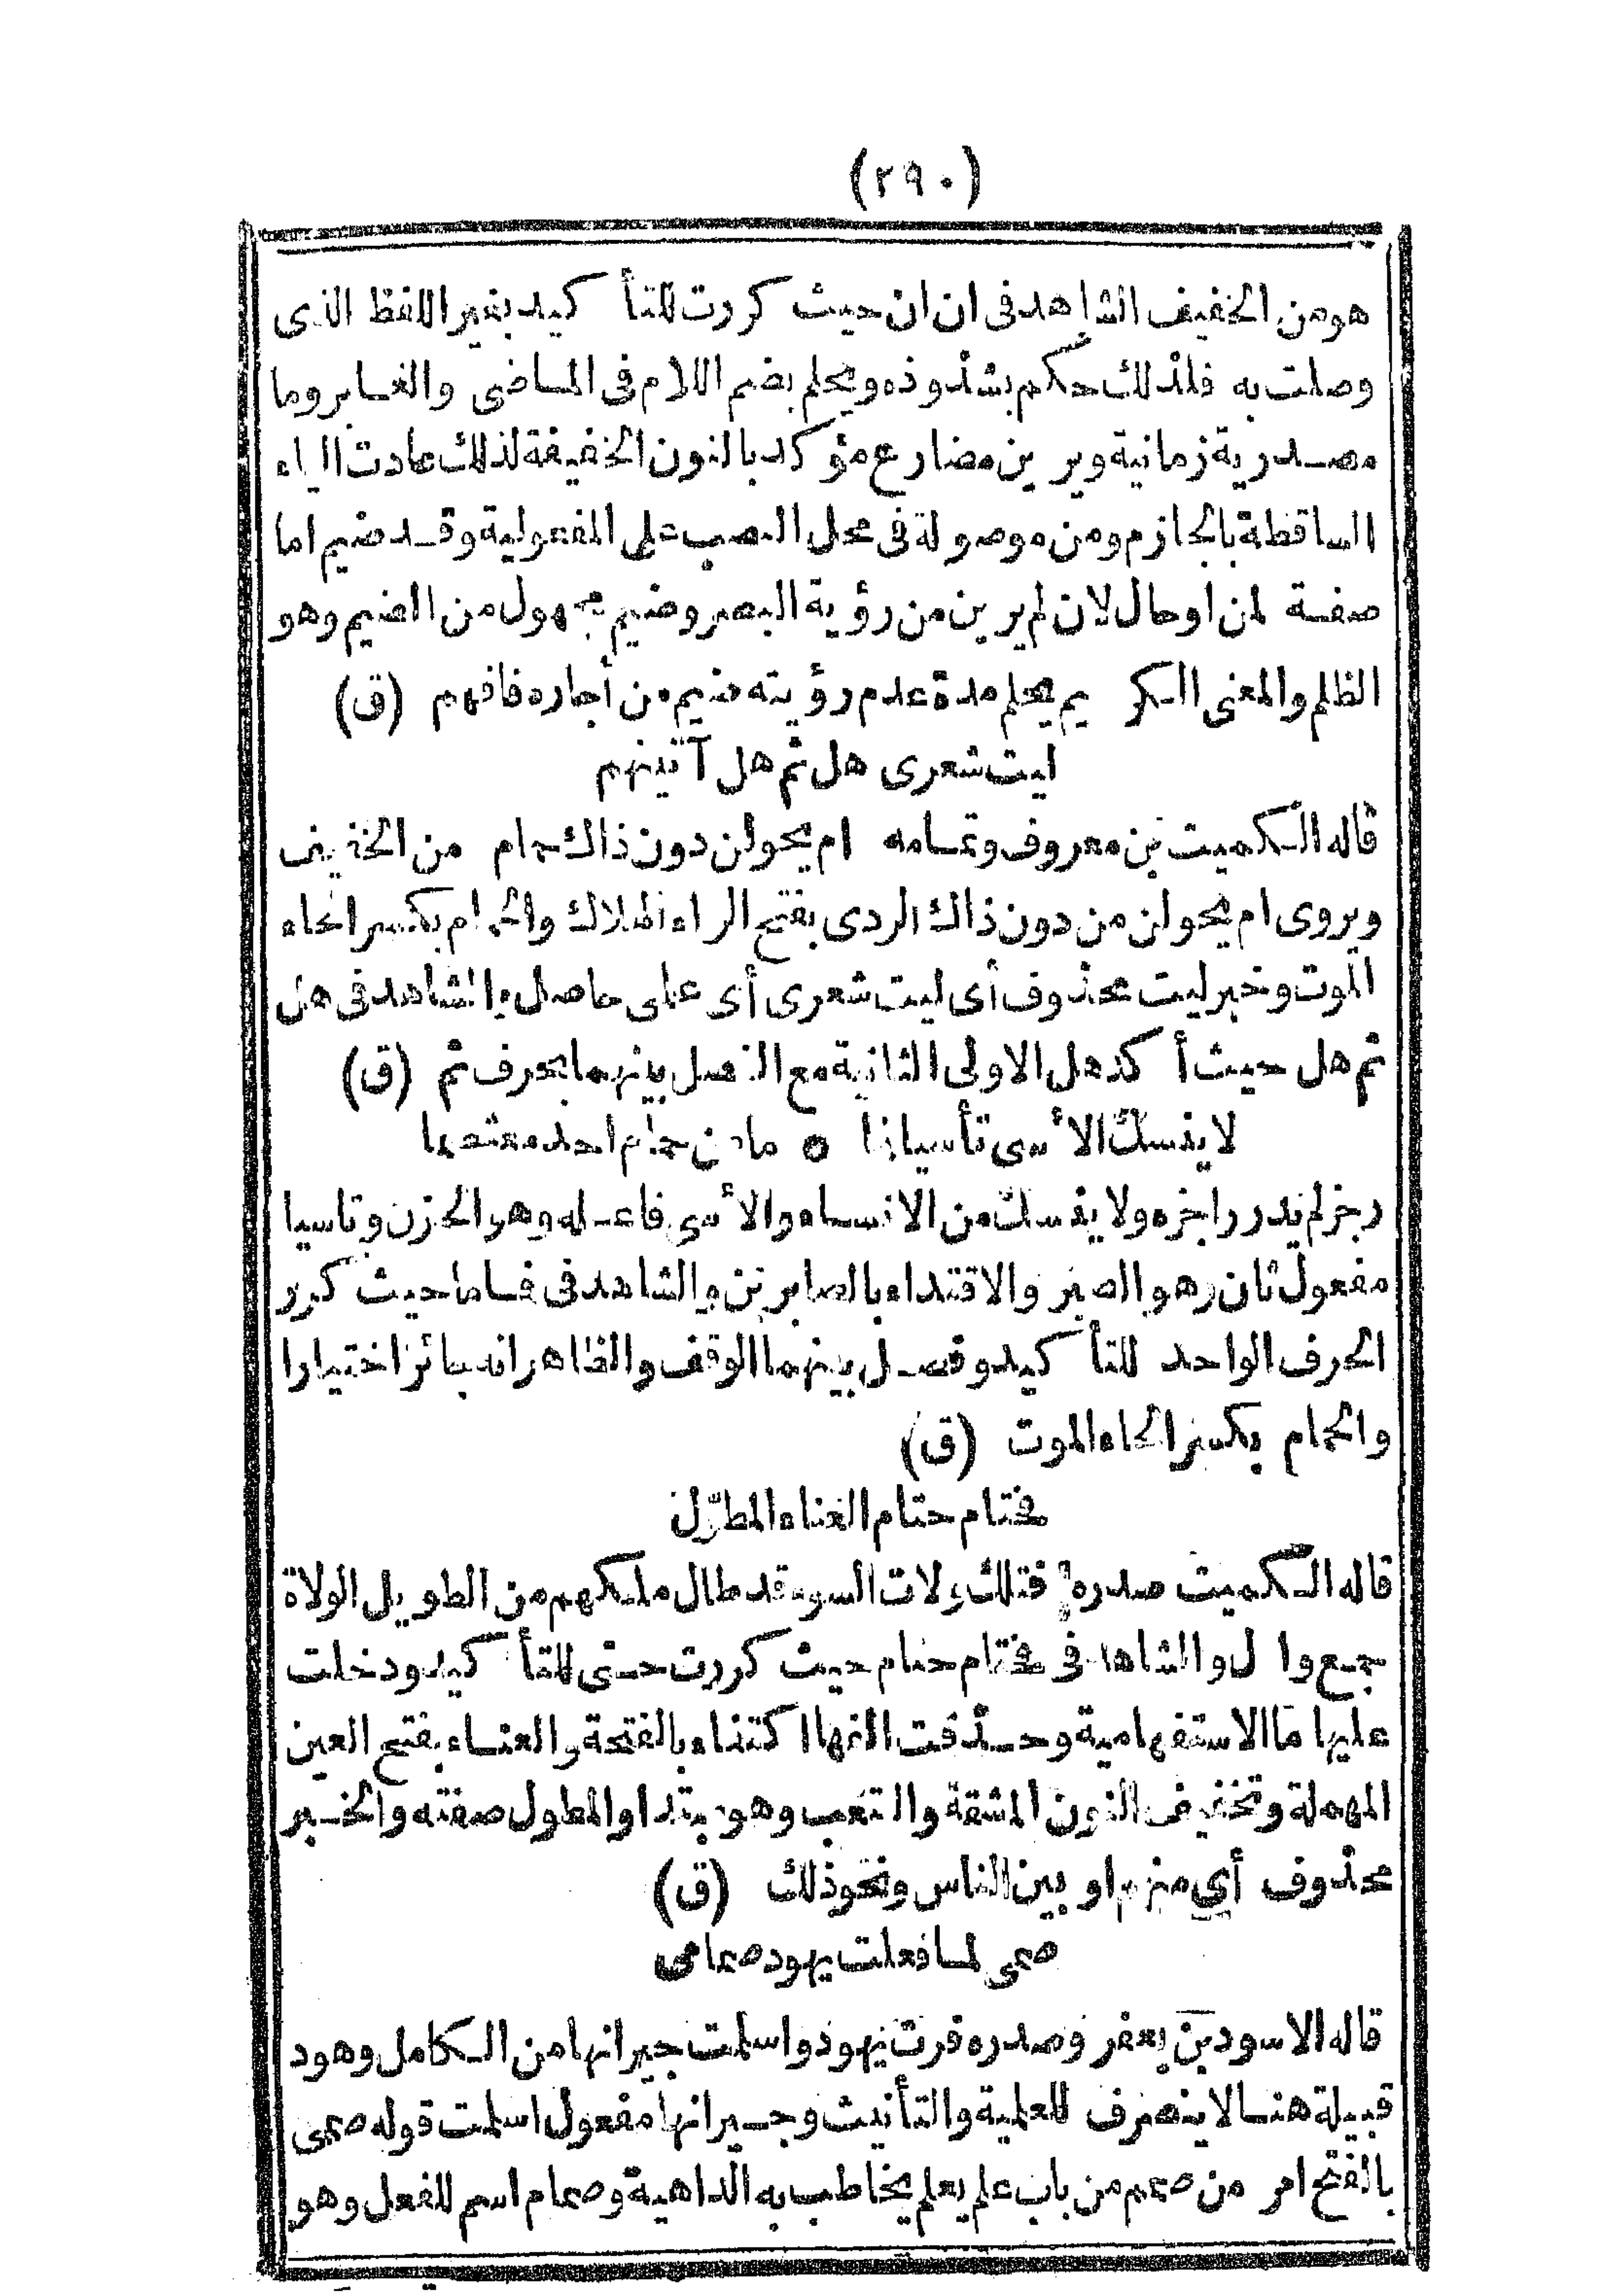 (٢٩٠)
هو من الخفيف الشاهد فى ان ان حيث كررت للتأ كيد بغير اللفظ الذى
وصلت به فلذلك حكم بشذوذه ويحلم بضم اللام فى الماضى والغابر وما
مصدرية زمانية وير ين مضارع مؤ كد بالنون الخفيفة لذلك عادت الياء
الساقطة بالجازم ومن موصولة فى محل النصب على المفعولية وقد ضيم اما
صفة لمن او حال لان لم يرين من رؤية البصر وضيم مجهول من الضيم وهو
الظلم والمعنى الكر يم يحلم مدة عدم رؤيته ضيم من أجاره فافهم (ق)
ليت شعرى هل ثم هل آتينهم
قاله الكميت بن معروف وتمامه ام يحولن دون ذاك حمام من الخفيف
ويروى ام يحولن من دون ذاك الردى بفتح الراء الهلاك والحمام بكسر الحاء
الموت وخبر ليت محذوف أى ليت شعرى أى على حاصل والشاهد فى هل
ثم هل حيث أ كد هل الاولى الثانية مع الفصل بينهما بحرف ثم (ق)
لا ينسك الأسى تأسيا فما ٥ ما من حمام احد معتصما
رجز لم يدر راجزه ولا ينسك من الانساء والأسى فاعله وهو الحزن وتاسيا
مفعول ثان وهو الصبر والاقتداء بالصابرين والشاهد فى فما ما حيث كرر
الحرف الواحد للتأ كيد وفصل بينهما الوقف والظاهر انه جائز اختيارا
والحمام بكسر الحاء الموت (ق)
فحتام حتام العناء المطوّل
قاله الكميت صدره فتلك ولات السوء قد طال ملكهم من الطويل الولاة
جمع وا ل والشاهد فى فحتام حتام حيث كررت حتى للتأ كيد ودخلت
عليها ما الاستفهامية وحذفت الفها اكتفاء بالفتحة والعناء بفتح العين
المهملة وتخفيف النون المشقة والتعب وهو مبتدا والمطول صفته والخبر
محذوف أي منهم او بين الناس ونحو ذلك (ق)
صمى لما فعلت يهود صمام
قاله الاسود بن يعفر وصدره فرت يهود واسلمت جيرانها من الكامل وهود
قبيلة هنا لا ينصرف للعلمية والتأنيث وجيرانها مفعول اسلمت قوله صمى
بالفتح امر من صمم من باب علم يعلم يخاطب به الداهية وصمام اسم للفعل وهو